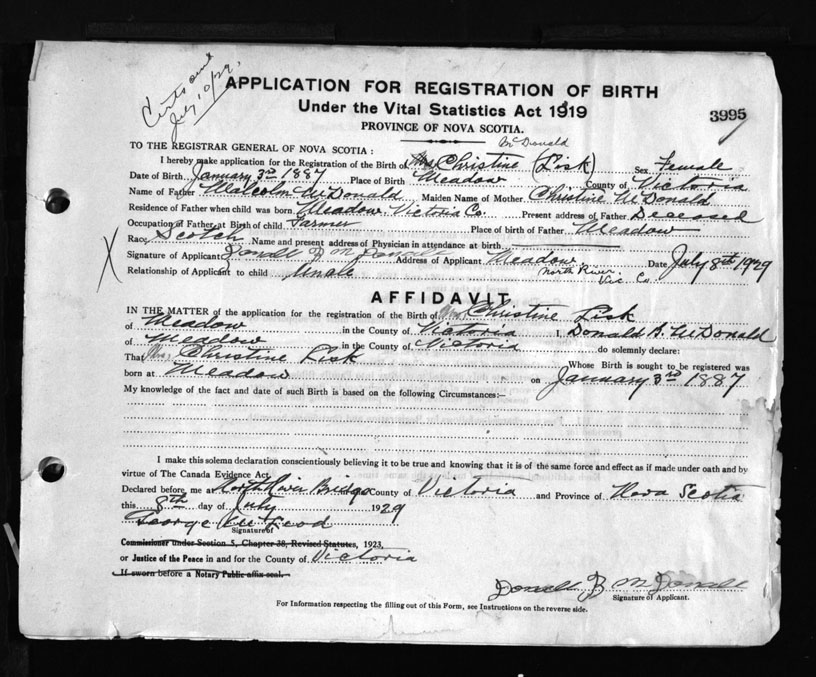 Cert sent
July 10/29.
APPLICATION FOR REGISTRATION OF BIRTH
Under the Vital Statistics Act 1919
3995
PROVINCE OF NOVA SCOTIA.
McDonald
TO THE REGISTRAR GENERAL OF NOVA SCOTIA:
I hereby make application for the Registration of the Birth of Mrs Christine (Lisk) Sex Female
Date of Birth January 3rd 1887 Place of Birth Meadow County of Victoria
Name of Father Malcolm McDonald Maiden Name of Mother Christine McDonald
Residence of Father when child was born Meadow. Victoria Co. Present address of Father Deceased
Occupation of Father at Birth of child Farmer Place of Birth of Father Meadow
Race Scotch Name and present address of Physician in attendance at birth
X Signature of Applicant Donald B McDonald Address of Applicant Meadow. Date July 8th 1929
Relationship of Applicant to child Uncle North River. Vic. Co
AFFIDAVIT
IN THE MATTER of the application for the registration of the Birth of Mrs Christine Lisk
of Meadow in the County of Victoria I, Donald B. McDonald
of Meadow in the County of Victoria do solemnly declare:
That Mrs Christine Lisk Whose Birth is sought to be registered was
born at Meadow on January 3rd 1887
My knowledge of the fact and date of such Birth is based on the following Circumstances:—
I make this solemn declaration conscientiously believing it to be true and knowing that it is of the same force and effect as if made under oath and by
virtue of The Canada Evidence Act.
Declared before me at North River Bridge County of Victoria and Province of Nova Scotia
this 8th day of July 1929
George McLeod
Signature of
Commissioner under Section 5, Chapter 38, Revised Statutes, 1923,
or Justice of the Peace in and for the County of Victoria
If sworn before a Notary Public affix seal.
Donald B McDonald
Signature of Applicant.
For Information respecting the filling out of this Form, see Instructions on the reverse side.